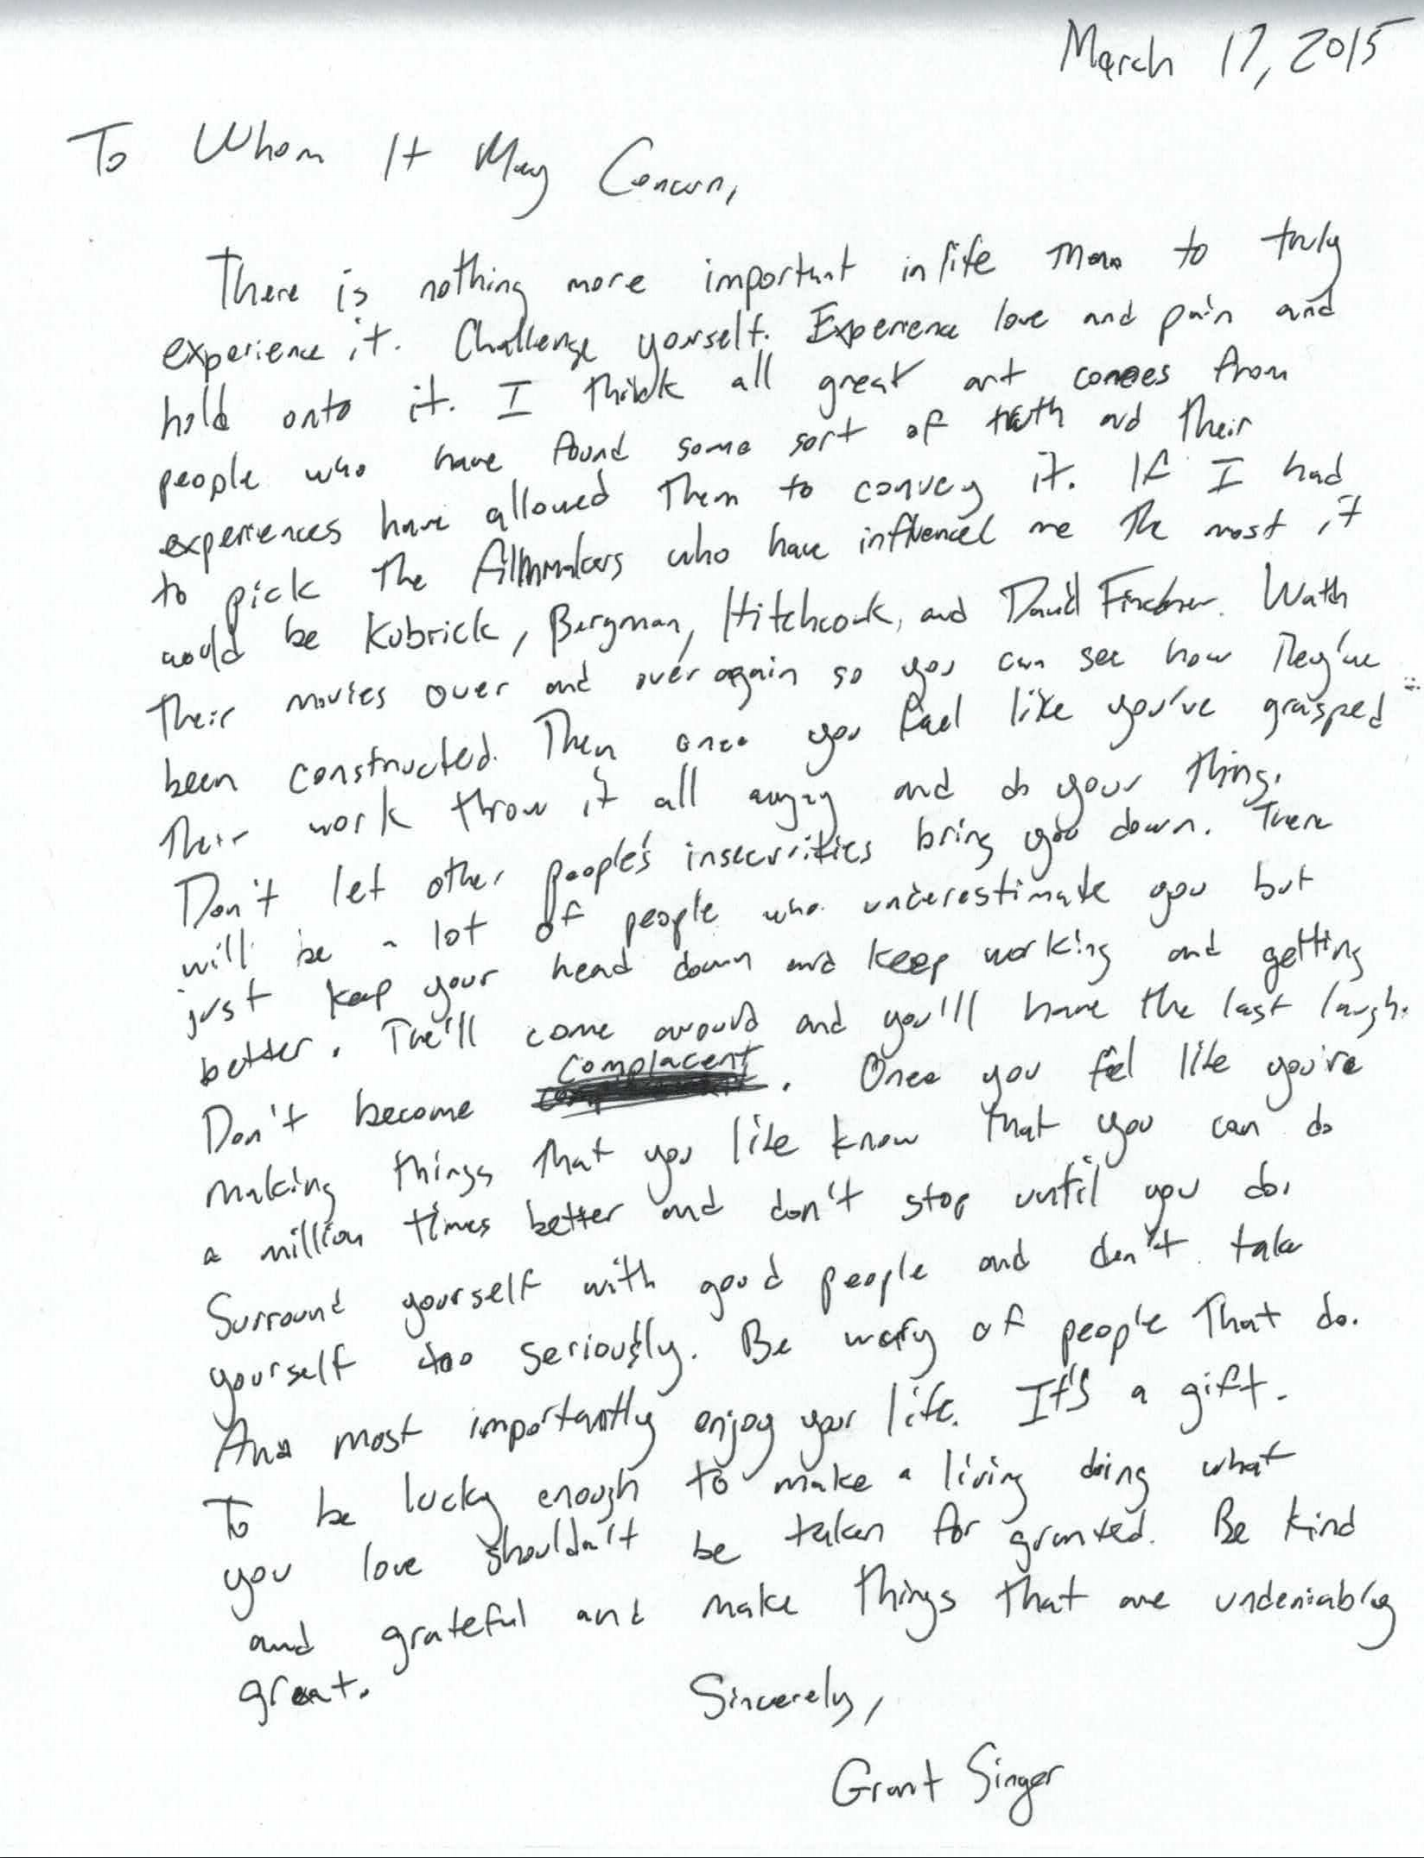 March 17, 2015
To Whom It May Concern,
There is nothing more important in life than to truly
experience it. Challenge yourself. Experience love and pain and
hold onto it. I think all great art comes from
people who have found some sort of truth and their
experiences have allowed them to convey it. If I had
to pick the filmmakers who have influenced me the most it
would be Kubrick, Bergman, Hitchcock, and David Fincher. Watch
their movies over and over again so you can see how they've
been constructed. Then once you feel like you've grasped
their work throw it all away and do your thing.
Don't let other people's insecurities bring you down. There
will be a lot of people who underestimate you but
just keep your head down and keep working and getting
better. The'll come around and you'll have the last laugh.
Don't become complacent. Once you feel like you're
making things that you like know that you can do
a million times better and don't stop until you do.
Surround yourself with good people and don't take
yourself too seriously. Be wary of people that do.
And most importantly enjoy your life. It's a gift.
To be lucky enough to make a living doing what
you love shouldn't be taken for granted. Be kind
and grateful and make things that are undeniably
great.
Sincerely,
Grant Singer